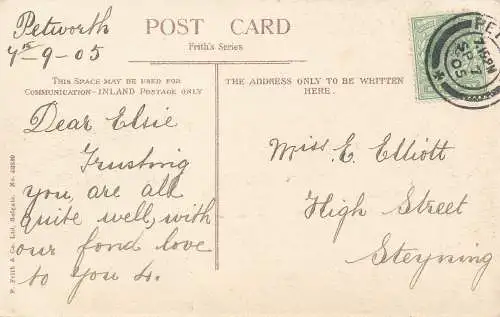 Petworth
7th-9-05
POST CARD
Frith's Series
THIS SPACE MAY BE USED FOR
COMMUNICATION—INLAND POSTAGE ONLY
THE ADDRESS ONLY TO BE WRITTEN
HERE.
Dear Elsie
Trusting
you, are all
quite well, with
our fond love
to you 4.
Miss E. Elliott
High Street
Steyning
F. Frith & Co. Ltd., Reigate. No.
PET
7.15PM
SP 7
05